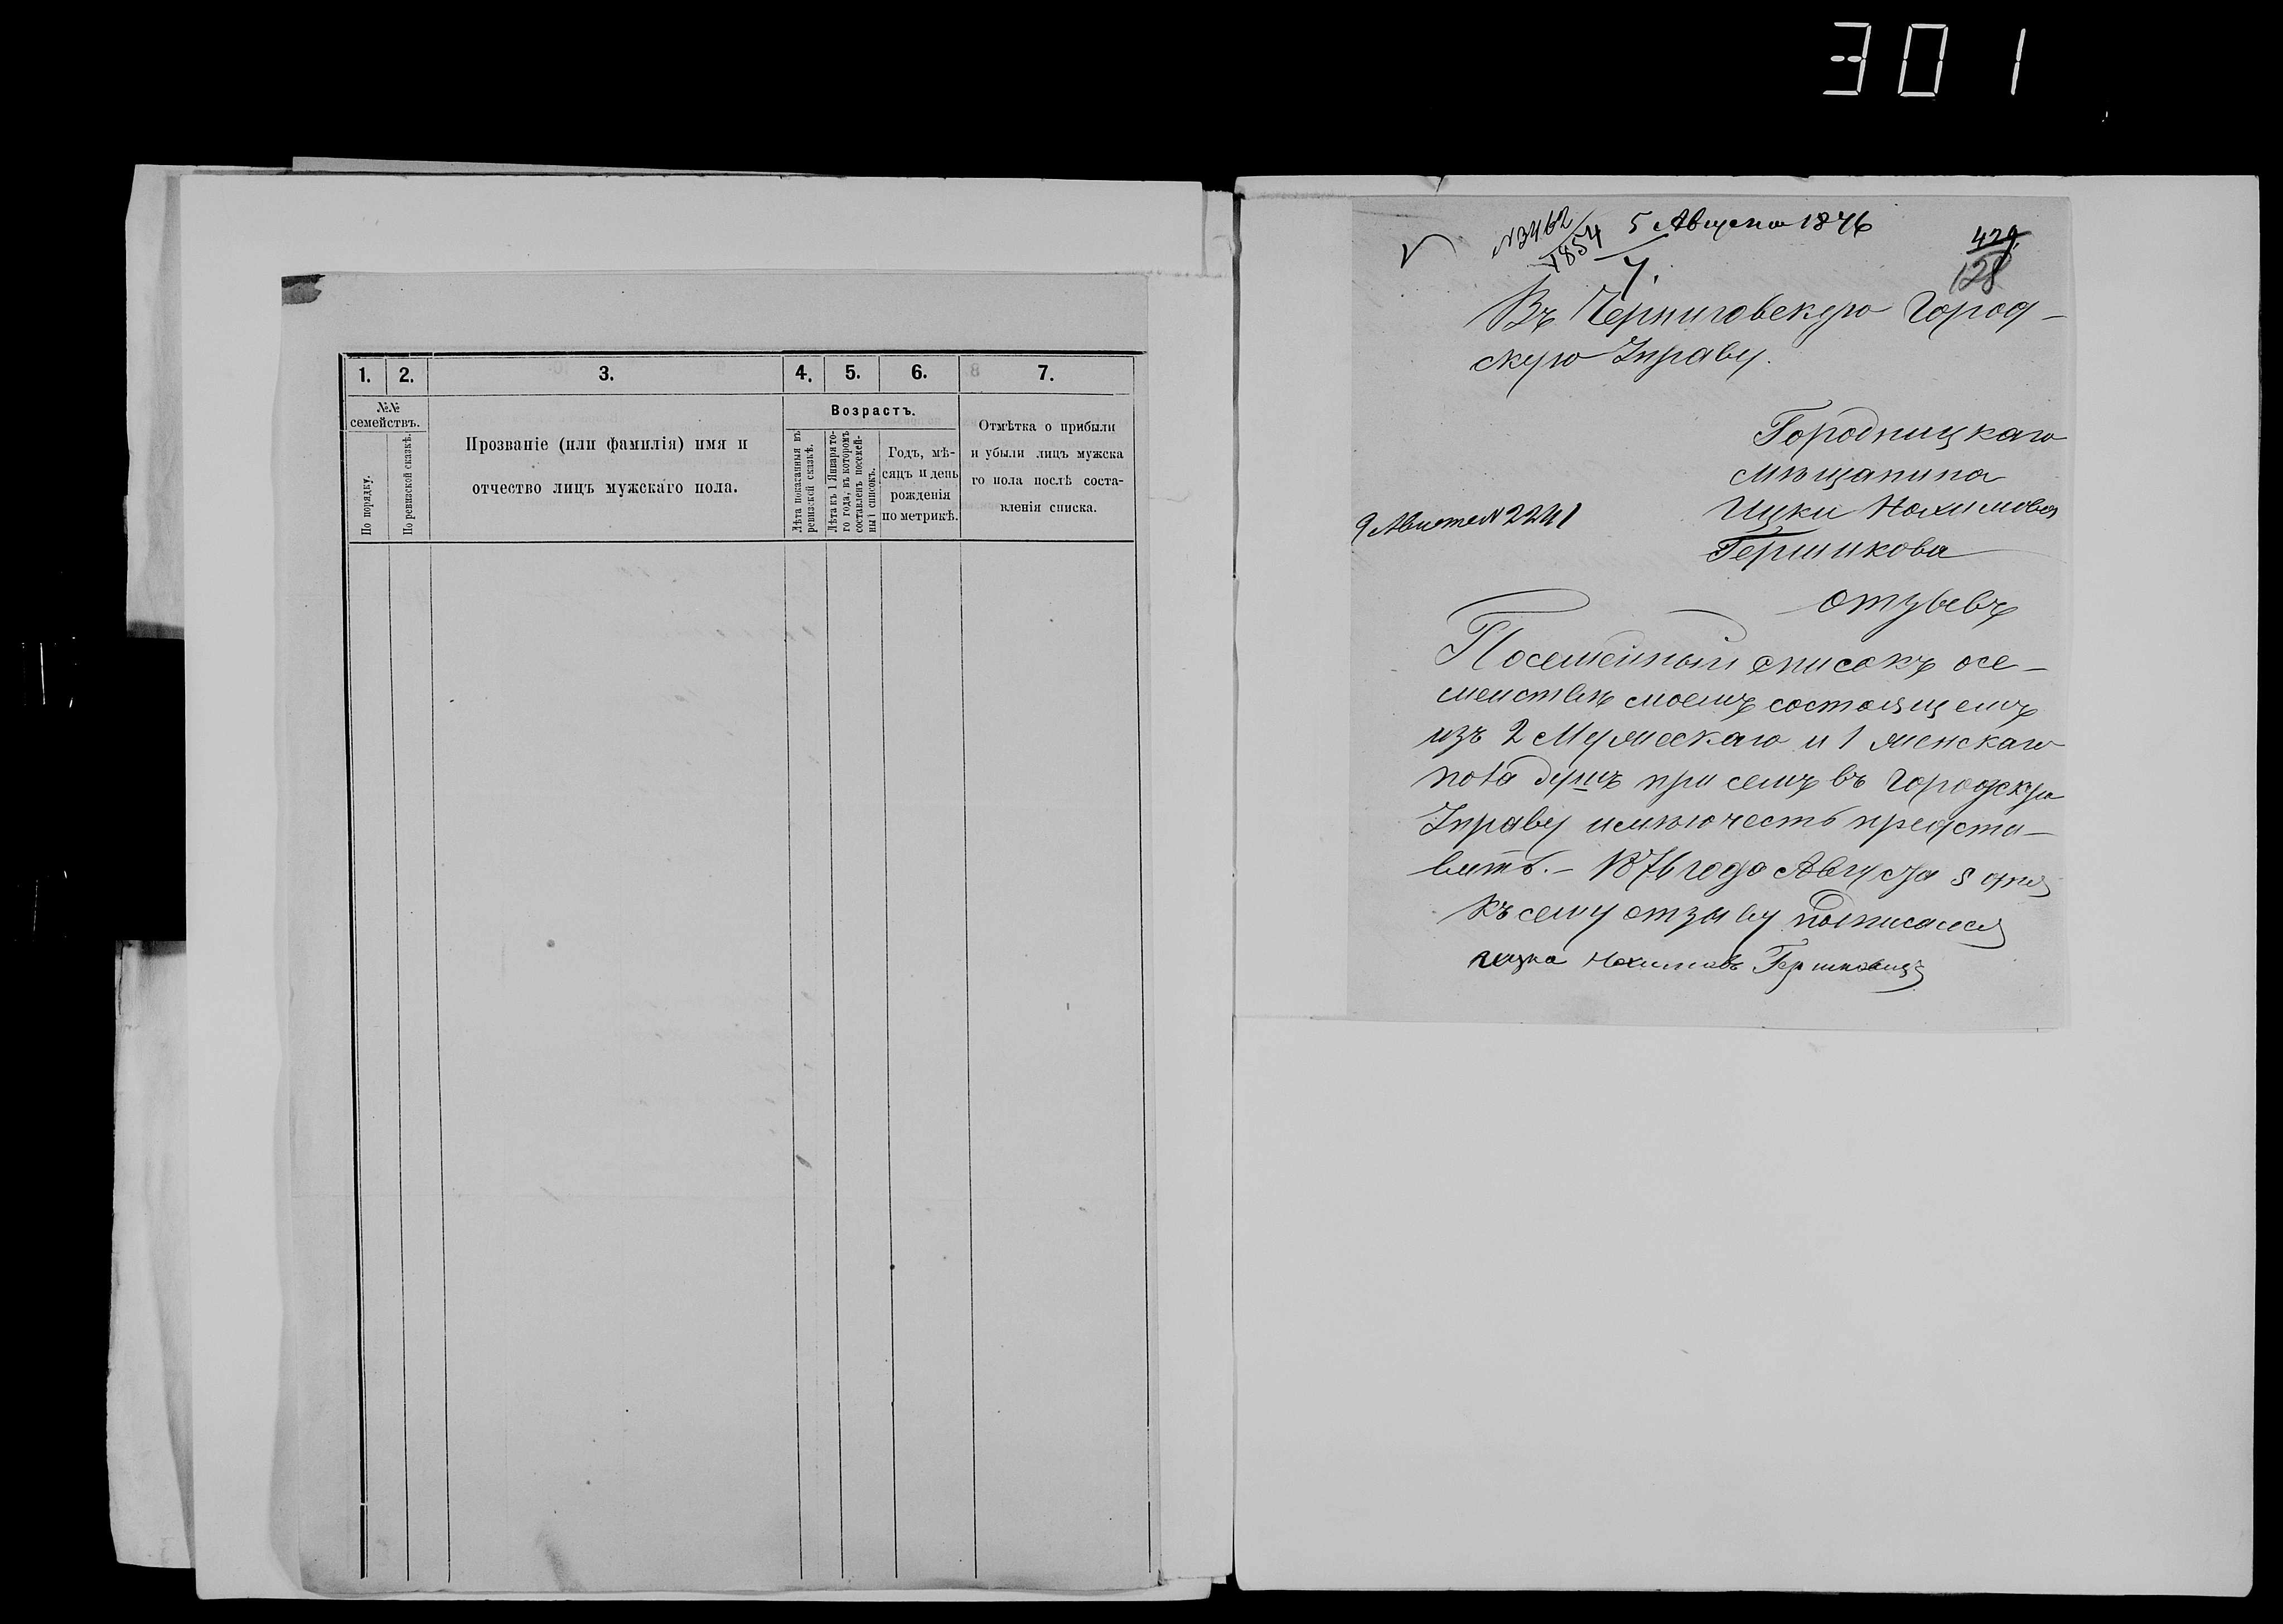 301
1.
2.
3.
4.
5.
6.
7.
№№
семействъ.
По порядку.
По ревизской сказкѣ.
Прозваніе (или фамилія) имя и
отчество лицъ мужскаго пола.
Возрастъ.
Лѣта показанныя въ
ревизской сказкѣ.
Лѣта къ 1 Января то-
го года, въ которомъ
составленъ посемей-
ный списокъ.
Годъ, мѣ-
сяцъ и день
рожденія
по метрикѣ.
Отмѣтка о прибыли
и убыли лицъ мужска
го пола послѣ соста-
вленія списка.
№3462
1854
5 Августа 1876
429
128
Въ Черниговскую Город-
скую Управу.
Городницкаго
мѣщанина
Ицки Нохимова
Гершикова
9 Августа №2241
отзывъ
Посемейный списокъ о се-
мействѣ моемъ состоящемъ
изъ 2 Мужескаго и 1 женскаго
пола душъ при семъ въ Городскую
Управу имѣю честь предста-
вить.- 1876 года Августа 5 дня
Къ сему отзыву подписался
Ицка Нохимовъ